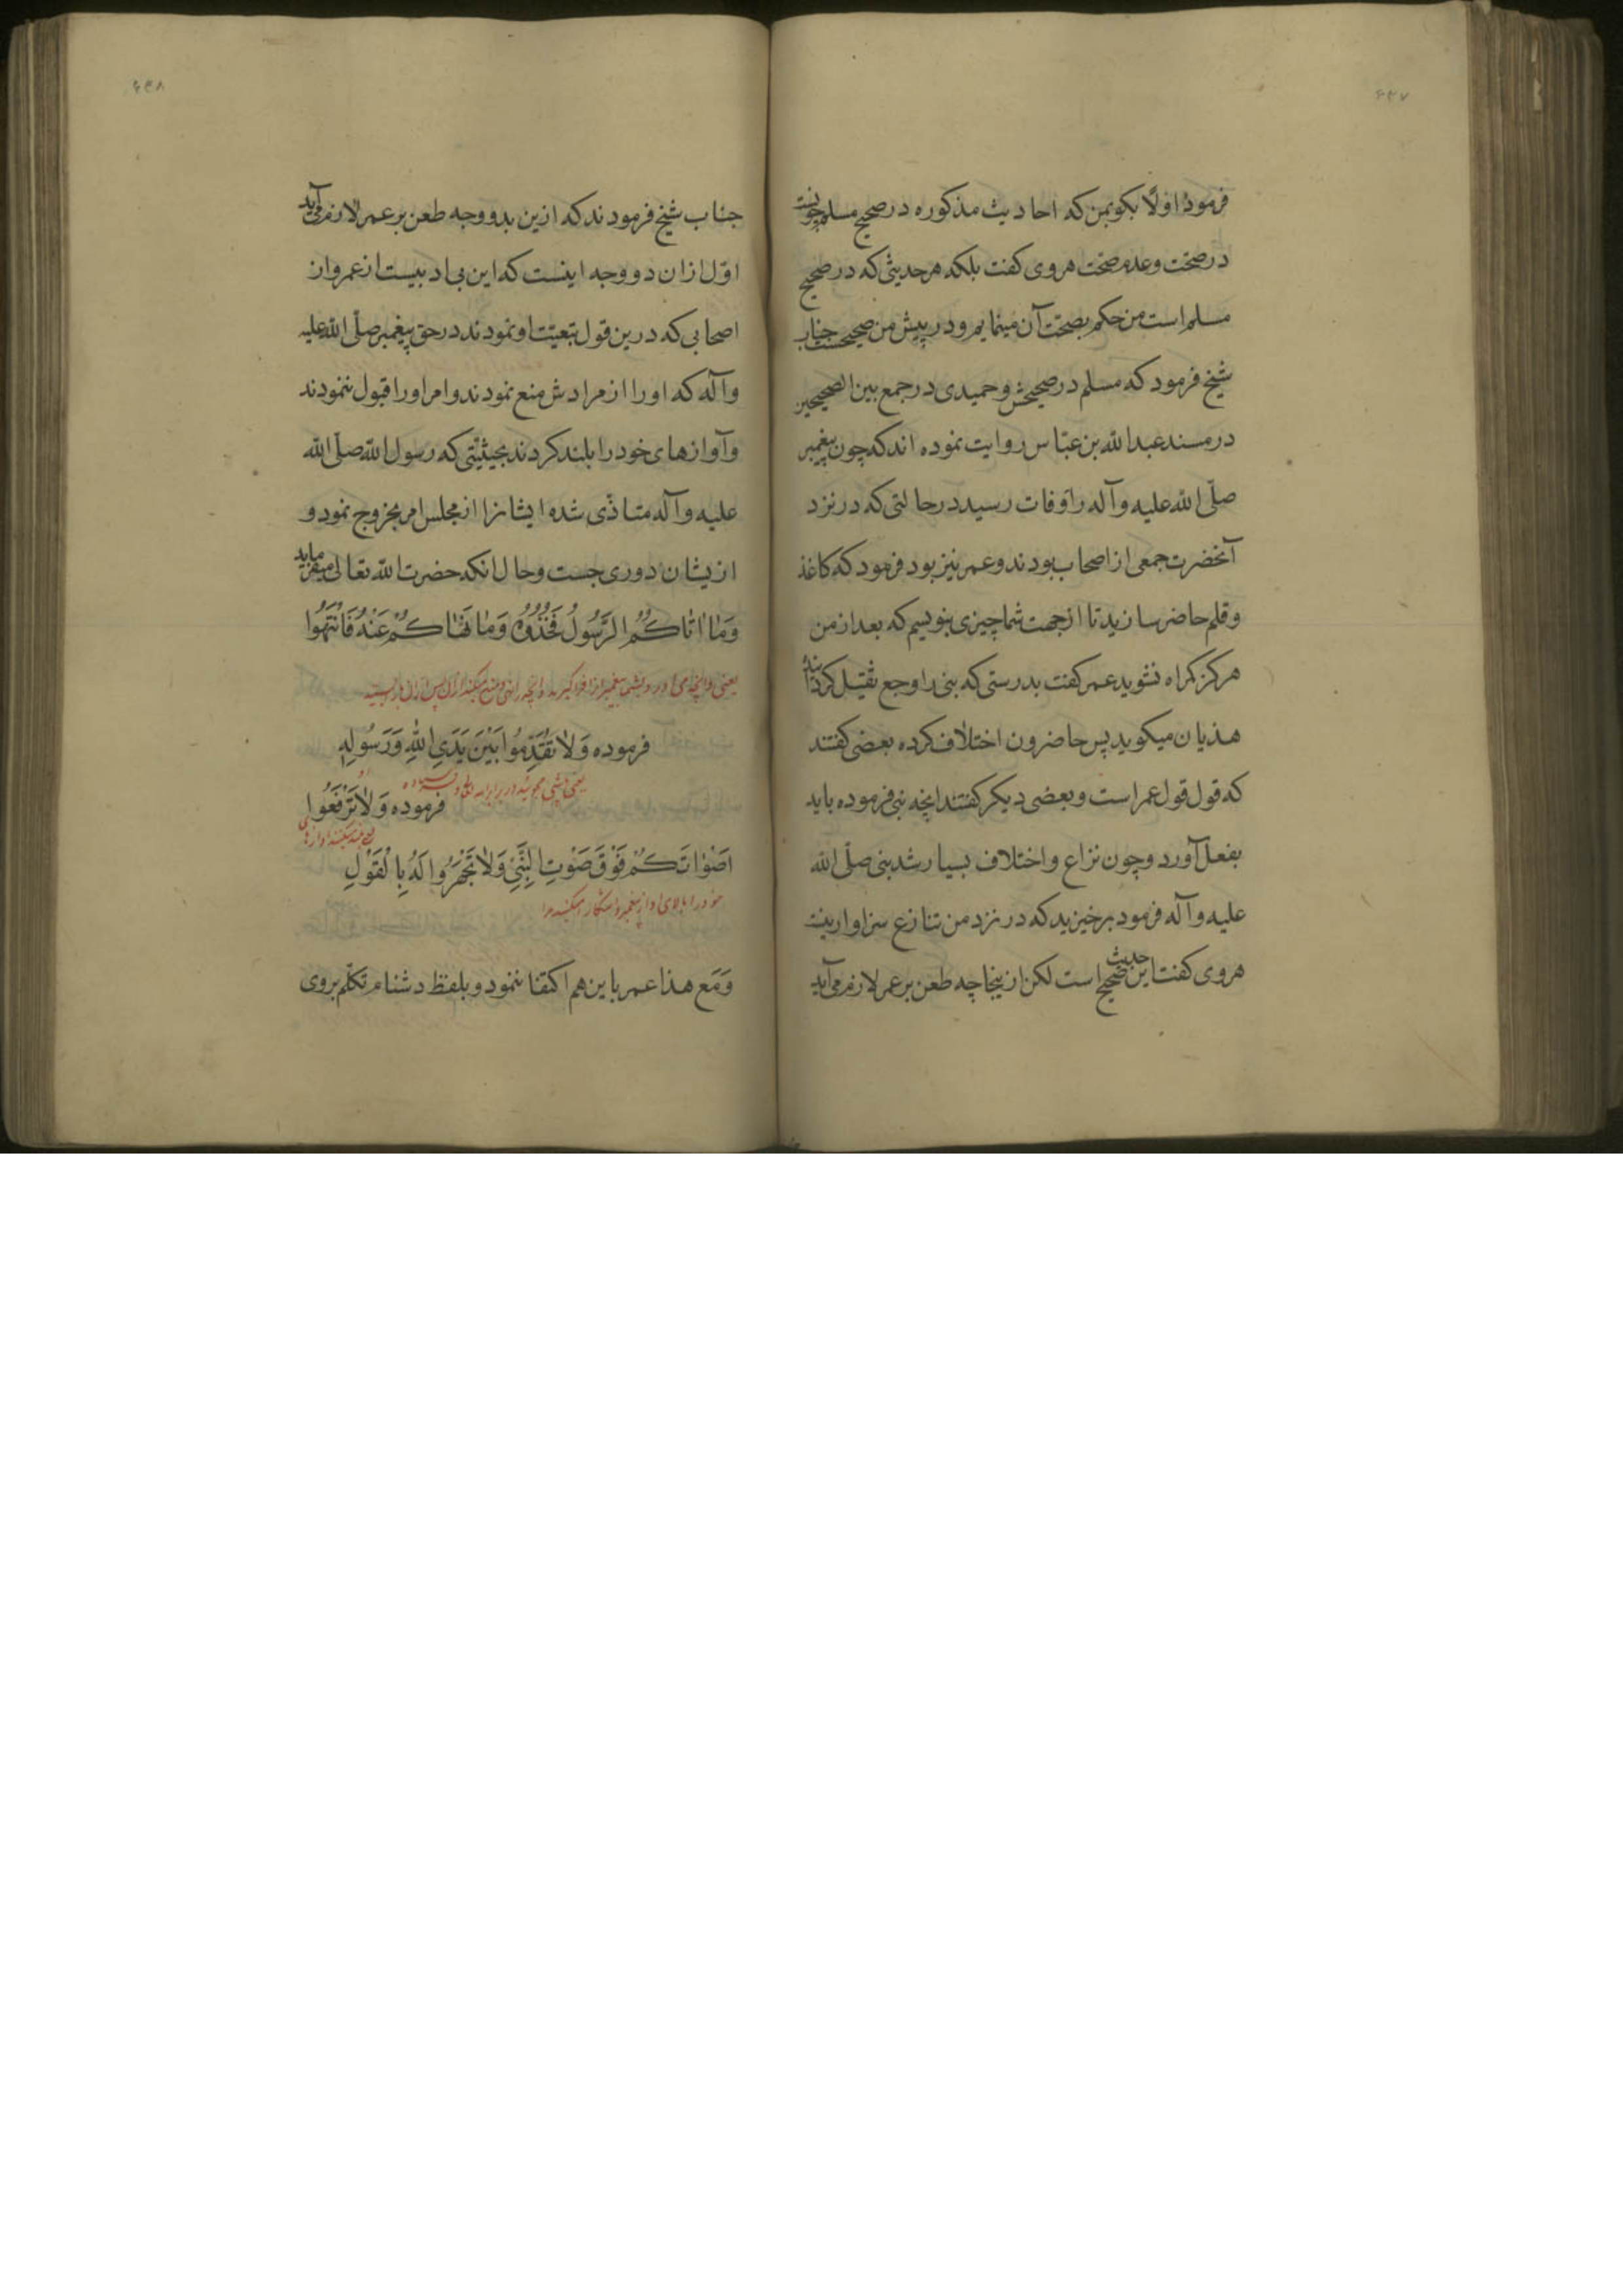 ۶۴۷
فرمود اولًا بکو بمن که احادیث مذکوره در صحیح مسلم چونست
در صحّت وعدم صحّت هروی کفت بلکه هر حدیثی که در صحیح
مسلم است من حکم بصحّت آن مینمایم ودر پیش من صحیحست جناب
شیخ فرمود که مسلم در صحیحش وحمیدی در جمع بین الصحیحین
در مسند عبدالله بن عبّاس روایت نموده اند که چون پیغمبر
صلّی الله علیه وآله را وفات رسید در حالتی که در نزد
آنحضرت جمعی از اصحاب بودند وعمر نیز بود فرمود که کاغذ
وقلم حاضر سازید تا از جهت شما چیزی بنویسم که بعد از من
هرکز کمراه نشوید عمر کفت بدرستی که نبی را وجع ثقیل کردانیده
هذیان میکوید پس حاضرون اختلاف کرده بعضی کفتند
که قول قول عمر است وبعضی دیکر کفتند انچه نبی فرموده باید
بفعل آورد وچون نزاع واختلاف بسیار شد نبی صلّی الله
علیه وآله فرمود برخیزید که در نزد من تنازع سزاوار نیست
هروی کفت این حدیث صحیح است لکن از ینجا چه طعن بر عمر لازم می آید
۶۴۸
جناب شیخ فرمودند که ازین بدو وجه طعن بر عمر لازم می آید
اوّل ازان دو وجه اینست که این بی ادبیست از عمر واز
اصحابی که درین قول تبعیّت او نمودند در حق پیغمبر صلّی الله علیه
وآله که او را از مرادش منع نمودند وامر او را قبول ننمودند
وآوازهای خود را بلند کردند بحیثیّتی که رسول الله صلّی الله
علیه وآله متاذّی شده ایشانرا از مجلس امر بخروج نمود و
ازیشان دوری جست وحال انکه حضرت الله تعالی میفرماید
وَمٰا اٰتٰاكُمُ الرَّسُولُ فَخُذُوهُ وَمٰا نَهٰاكُمْ عَنْهُ فَانْتَهُوا
یعنی وانچه می آورد بشما پیغمبر انرا فراکیرید وانچه را نهی ومنع میکند ازان پس ازان باز ایستید
فرموده وَلاٰ تُقَدِّمُوا بَيْنَ يَدَيِ اللّٰهِ وَرَسُولِهِ
فرموده وَلاٰ تَرْفَعُوا
اَصْوٰاتَكُمْ فَوْقَ صَوْتِ النَّبِيِّ وَلاٰ تَجْهَرُوا لَهُ بِالْقَوْلِ
خود را بالای اواز پیغمبر واشکار مکنید مرا
وَمَع هذا عمر باین هم اکتفا ننمود وبلفظ دشنام تکلّم بروی